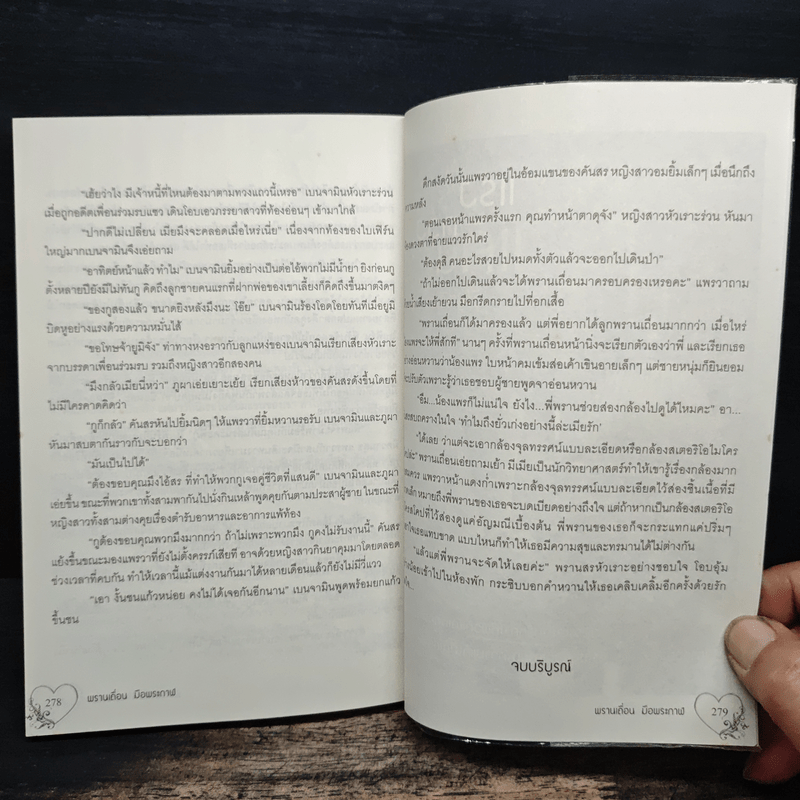 "เฮ้ยว่าไง มีเจ้าหนี้ที่ไหนต้องมาตามทวงแถวนี้เหรอ" เบนจามินหัวเราะร่วน
เมื่อถูกอดีตเพื่อนร่วมรบแซว เดินโอบเอวภรรยาสาวที่ท้องอ่อนๆ เข้ามาใกล้
"ปากดีไม่เปลี่ยน เมียมึงจะคลอดเมื่อไหร่เนี่ย" เนื่องจากท้องของใบเฟิร์น
ใหญ่มากเบนจามินจึงเอ่ยถาม
"อาทิตย์หน้าแล้ว ทำไม" เบนจามินยิ้มอย่างเป็นต่อไอ้พวกไม่มีน้ำยา ยิงก่อนกู
ตั้งหลายปียังมีไม่ทันกู คิดถึงลูกชายคนแรกที่ฝากพ่อของเขาเลี้ยงก็คิดถึงขึ้นมาตงิดๆ
"ของกูสองแล้ว ขนาดยิงหลังมึงนะ โอ๊ย" เบนจามินร้องโอดโอยทันทีเมื่อยูมิ
บิดหูอย่างแรงด้วยความหมั่นไส้
"ขอโทษจ้ายูมิจัง" ท่าทางหงอราวกับลูกแหง่ของเบนจามินเรียกเสียงหัวเราะ
จากบรรดาเพื่อนร่วมรบ รวมถึงหญิงสาวอีกสองคน
"มึงกลัวเมียนี่หว่า" ภูผาเอ่ยเยาะเย้ย เรียกเสียงห้าวของคันสรดังขึ้นโดยที่
ไม่มีใครคาดคิดว่า
"กูก็กลัว" คันสรหันไปยิ้มนิดๆ ให้แพรวาที่ยิ้มหวานรอรับ เบนจามินและภูผา
หันมาสบตากันราวกับจะบอกว่า
"มันเป็นไปได้"
"ต้องขอบคุณมึงไอ้สร ที่ทำให้พวกกูเจอคู่ชีวิตที่แสนดี" เบนจามินและภูผา
เอ่ยขึ้น ขณะที่พวกเขาทั้งสามพากันไปนั่งกินเหล้าพูดคุยกันตามประสาผู้ชาย ในขณะที่
หญิงสาวทั้งสามต่างคุยเรื่องตำรับอาหารและอาการแพ้ท้อง
"กูต้องขอบคุณพวกมึงมากกว่า ถ้าไม่เพราะพวกมึง กูคงไม่รับงานนี้" คันสร
แย้งขึ้นขณะมองแพรวาที่ยังไม่ตั้งครรภ์เสียที อาจด้วยหญิงสาวกินยาคุมมาโดยตลอด
ช่วงเวลาที่คบกัน ทำให้เวลานี้แม้แต่งงานกันมาได้หลายเดือนแล้วก็ยังไม่มีวี่แวว
"เอา งั้นชนแก้วหน่อย คงไม่ได้เจอกันอีกนาน" เบนจามินพูดพร้อมยกแก้ว
ขึ้นชน
278
พรานเถื่อน มือพระกาฬ
ดึกสงัดวันนั้นแพรวาอยู่ในอ้อมแขนของคันสร หญิงสาวอมยิ้มเล็กๆ เมื่อนึกถึง
ความหลัง
"ตอนเจอหน้าแพรครั้งแรก คุณทำหน้าตาดุจัง" หญิงสาวหัวเราะร่วน หันมา
ดวงตาที่ฉายแววรักใคร่
"ต้องดุสิ คนอะไรสวยไปหมดทั้งตัวแล้วจะออกไปเดินป่า"
"ถ้าไม่ออกไปเดินแล้วจะได้พรานเถื่อนมาครอบครองเหรอคะ" แพรวาถาม
น้ำเสียงเย้ายวน มือกรีดกรายไปที่อกเสื้อ
"พรานเถื่อนก็ได้มาครองแล้ว แต่พี่อยากได้ลูกพรานเถื่อนมากกว่า เมื่อไหร่
แพรจะให้พี่สักที" นานๆ ครั้งที่พรานเถื่อนหน้านิ่งจะเรียกตัวเองว่าพี่ และเรียกเธอ
อย่างอ่อนหวานว่าน้องแพร ใบหน้าคมเข้มส่อเค้าเขินอายเล็กๆ แต่ชายหนุ่มก็ยินยอม
จะปรับตัวเพราะรู้ว่าเธอชอบผู้ชายพูดจาอ่อนหวาน
"อืม...น้องแพรก็ไม่แน่ใจ ยังไง...พี่พรานช่วยส่องกล้องไปดูได้ไหมคะ" อา...
สบถครางในใจ 'ทำไมถึงยั่วเก่งอย่างนี้ล่ะเมียรัก'
"ได้เลย ว่าแต่จะเอากล้องจุลทรรศน์แบบละเอียดหรือกล้องสเตอริโอไมโคร
พรานเถื่อนเอ่ยถามเย้า มีเมียเป็นนักวิทยาศาสตร์ทำให้เขารู้เรื่องกล้องมาก
แพรวาหน้าแดงก่ำเพราะกล้องจุลทรรศน์แบบละเอียดไว้ส่องชิ้นเนื้อที่มี
เล็ก หมายถึงพี่พรานของเธอจะบดเบียดอย่างถึงใจ แต่ถ้าหากเป็นกล้องสเตอริโอ
สโคปที่ไว้ส่องดูแค่อัญมณีเบื้องต้น พี่พรานของเธอก็จะกระแทกแค่ปริ่มๆ
ให้เธอแทบขาด แบบไหนก็ทำให้เธอมีความสุขและทรมานได้ไม่ต่างกัน
"แล้วแต่พี่พรานจะจัดให้เลยค่ะ" พรานสรหัวเราะอย่างชอบใจ โอบอุ้ม
น้อยเข้าไปในห้องพัก กระซิบบอกคำหวานให้เธอเคลิบเคลิ้มอีกครั้งด้วยรัก
จบบริบูรณ์
พรานเถื่อน มือพระกาฬ
279